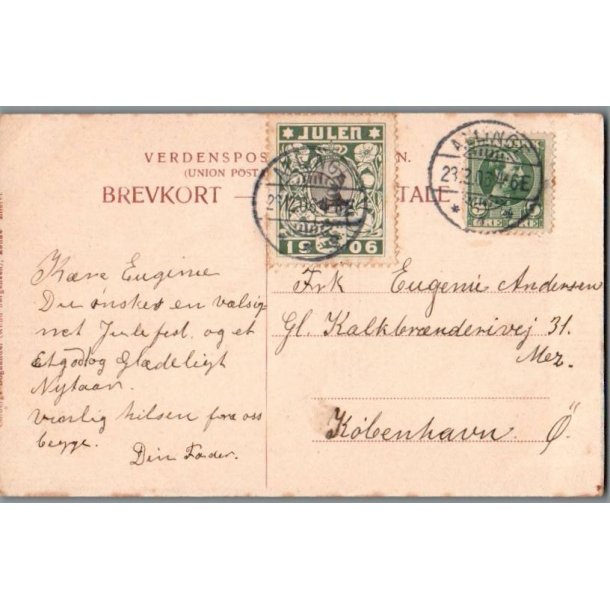 VERDENSPOS
N.
(UNION POST
BREVKORT — TALE
JULEN
1906
23.12.06 4-6E
Kære Eugenie
Du ønskes en valsig-
net Julefest. og et
Etgodog Glædeligt
Nytaar.
værlig hilsen fra oss
begge.
Din Fader.
Frk Eugeni Andersen
Gl. Kalkbrænderivej 31.
Mez.
København Ø.